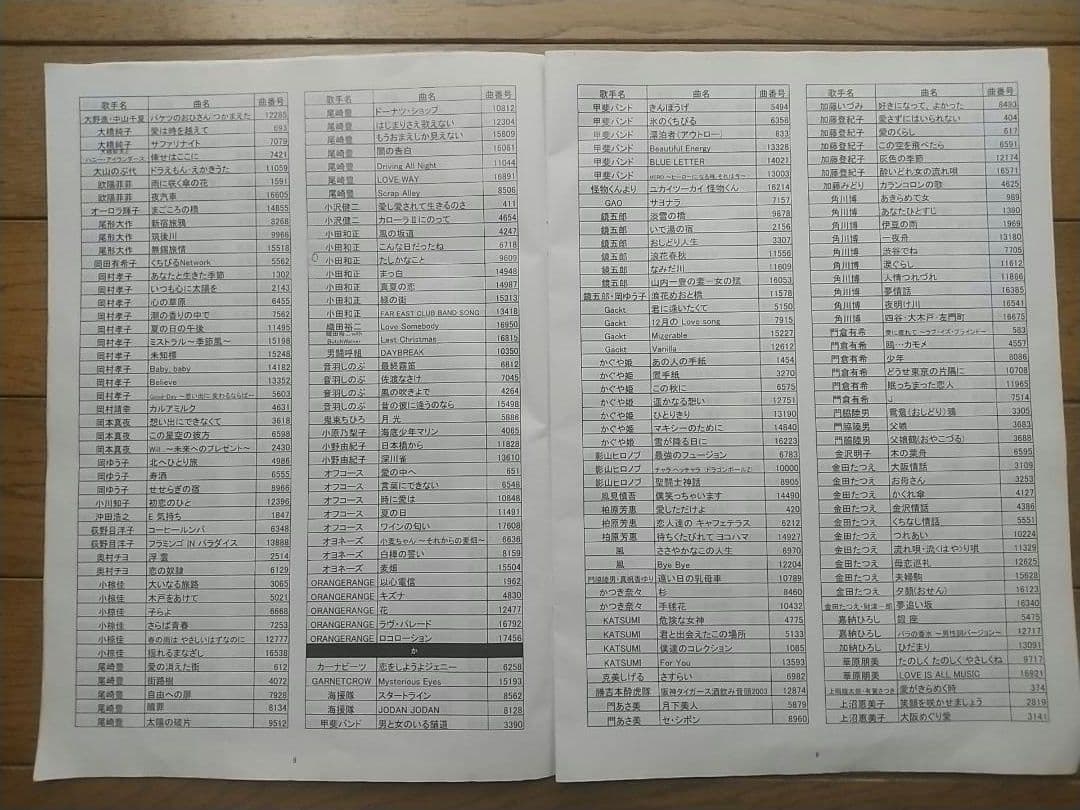 歌手名 曲名 曲番号
大野進・中山千夏 バケツのおひさん つかまえた 12285
大橋純子 愛は時を越えて 693
大橋純子 サファリナイト 7079
ハニー・アイランダース 倖せはここに 7421
大山のぶ代 ドラえもん・えかきうた 11059
欧陽菲菲 雨に咲く傘の花 1591
欧陽菲菲 夜汽車 16605
オーロラ輝子 まごころの橋 14855
尾形大作 新宿旅鴉 8268
尾形大作 筑後川 9966
尾形大作 無錫旅情 15518
岡田有希子 くちびるNetwork 5562
岡村孝子 あなたと生きた季節 1302
岡村孝子 いつも心に太陽を 2143
岡村孝子 心の草原 6455
岡村孝子 潮の香りの中で 7562
岡村孝子 夏の日の午後 11495
岡村孝子 ミストラル～季節風～ 15198
岡村孝子 未知標 15248
岡村孝子 Baby, baby 14182
岡村孝子 Believe 13352
岡村孝子 Good-Day ～思い出に変わるならば～ 5603
岡村靖幸 カルアミルク 4631
岡本真夜 想い出にできなくて 3618
岡本真夜 この星空の彼方 6598
岡本真夜 Will…～未来へのプレゼント～ 2430
岡ゆう子 北へひとり旅 4986
岡ゆう子 寿酒 6555
岡ゆう子 せせらぎの宿 8966
小川知子 初恋のひと 12396
沖田浩之 E気持ち 1847
荻野目洋子 コーヒールンバ 6348
荻野目洋子 フラミンゴ IN パラダイス 13888
奥村チヨ 浮雲 2514
奥村チヨ 恋の奴隷 6129
小椋佳 大いなる旅路 3065
小椋佳 木戸をあけて 5021
小椋佳 子らよ 6668
小椋佳 さらば青春 7253
小椋佳 春の雨は やさしいはずなのに 12777
小椋佳 揺れるまなざし 16538
尾崎豊 愛の消えた街 612
尾崎豊 街路樹 4072
尾崎豊 自由への扉 7928
尾崎豊 贖罪 8134
尾崎豊 太陽の破片 9512
歌手名 曲名 曲番号
尾崎豊 ドーナツ・ショップ 10812
尾崎豊 はじまりさえ歌えない 12304
尾崎豊 もうおまえしか見えない 15809
尾崎豊 闇の告白 16061
尾崎豊 Driving All Night 11044
尾崎豊 LOVE WAY 16891
尾崎豊 Scrap Alley 8506
小沢健二 愛し愛されて生きるのさ 411
小沢健二 カローラⅡにのって 4654
小田和正 風の坂道 4247
小田和正 こんな日だったね 6718
小田和正 たしかなこと 9609
小田和正 まっ白 14948
小田和正 真夏の恋 14987
小田和正 緑の街 15313
小田和正 FAR EAST CLUB BAND SONG 13418
織田裕二 Love Somebody 16950
織田裕二 with ButchWalker Last Christmas 16815
男闘呼組 DAYBREAK 10350
音羽しのぶ 最終霧笛 6812
音羽しのぶ 佐渡なさけ 7045
音羽しのぶ 風の吹きさき 4264
音羽しのぶ 昔の彼に逢うのなら 15498
鬼束ちひろ 月光 5886
小原乃梨子 海底少年マリン 4065
小野由紀子 日本橋から 11828
小野由紀子 深川雀 13610
オフコース 愛の中へ 651
オフコース 言葉にできない 6548
オフコース 時に愛は 10848
オフコース 夏の日 11491
オフコース ワインの匂い 17608
オヨネーズ 小麦ちゃん～それからの麦畑～ 6636
オヨネーズ 白樺の誓い 8159
オヨネーズ 麦畑 15504
ORANGERANGE 以心電信 1962
ORANGERANGE キズナ 4830
ORANGERANGE 花 12477
ORANGERANGE ラヴ・パレード 16792
ORANGERANGE ロコローション 17456
か
カーナビーツ 恋をしようよジェニー 6258
GARNETCROW Mysterious Eyes 15193
海援隊 スタートライン 8562
海援隊 JODAN JODAN 8128
甲斐バンド 男と女のいる舗道 3390
8
歌手名 曲名 曲番号
甲斐バンド きんぽうげ 5494
甲斐バンド 氷のくちびる 6356
甲斐バンド 漂泊者(アウトロー) 833
甲斐バンド Beautiful Energy 13328
甲斐バンド BLUE LETTER 14021
甲斐バンド HERO ～ヒーローになる時、それは今～ 13003
怪物くんより ユカイツーカイ 怪物くん 16214
GAO サヨナラ 7157
鏡五郎 淡雪の橋 9678
鏡五郎 いで湯の宿 2156
鏡五郎 おしどり人生 3307
鏡五郎 浪花春秋 11556
鏡五郎 なみだ川 11609
鏡五郎 山内一豊の妻―女の掟 16053
鏡五郎・岡ゆう子 浪花めおと橋 11578
Gackt 君に逢いたくて 5150
Gackt 12月の Love song 7915
Gackt Mizerable 15227
Gackt Vanilla 12612
かぐや姫 あの人の手紙 1454
かぐや姫 置手紙 3270
かぐや姫 この秋に 6575
かぐや姫 遥かなる想い 12751
かぐや姫 ひとりきり 13190
かぐや姫 マキシーのために 14840
かぐや姫 雪が降る日に 16223
影山ヒロノブ 最強のフュージョン 6783
影山ヒロノブ チャラ・ヘッチャラ (ドラゴンボールZ) 10000
影山ヒロノブ 聖闘士神話 8905
風見慎吾 僕笑っちゃいます 14490
柏原芳恵 愛しただけよ 420
柏原芳恵 恋人達の キャフェテラス 6212
柏原芳恵 待ちくたびれて ヨコハマ 14927
風 ささやかなこの人生 6970
風 Bye Bye 12204
門脇陸男・真帆香ゆり 遠い日の乳母車 10789
かつき奈々 杉 8460
かつき奈々 手毬花 10432
KATSUMI 危険な女神 4775
KATSUMI 君と出会えたこの場所 5133
KATSUMI 僕達のコレクション 1085
KATSUMI For You 13593
克美しげる さすらい 6982
勝吉本酔虎隊 阪神タイガース酒飲み音頭2003 12874
門あさ美 月下美人 5879
門あさ美 セ・シボン 8960
歌手名 曲名 曲番号
加藤いづみ 好きになって、よかった 8493
加藤登紀子 愛さずにはいられない 404
加藤登紀子 愛のくらし 617
加藤登紀子 この空を飛べたら 6591
加藤登紀子 灰色の季節 12174
加藤登紀子 酔いどれ女の流れ唄 16571
加藤みどり カランコロンの歌 4625
角川博 あきらめて女 989
角川博 あなたひとすじ 1390
角川博 伊豆の雨 1969
角川博 一夜舟 13180
角川博 渋谷でね 7705
角川博 涙ぐらし 11612
角川博 人情つれづれ 11866
角川博 夢情話 16385
角川博 夜明け川 16541
角川博 四谷・大木戸・左門町 16675
門倉有希 愛に疲れて ～ラブ・イズ・ブラインド～ 583
門倉有希 鴎…カモメ 4557
門倉有希 少年 8086
門倉有希 どうせ東京の片隅に 10708
門倉有希 眠っちまった恋人 11965
門倉有希 J 7514
門脇陸男 鴛鴦(おしどり)鴉 3305
門脇陸男 父娘 3683
門脇陸男 父娘鶴(おやこづる) 3688
金沢明子 木の葉舟 6595
金田たつえ 大阪情話 3109
金田たつえ お母さん 3253
金田たつえ かくれ傘 4127
金田たつえ 金沢情話 4386
金田たつえ くちなし情話 5551
金田たつえ つれあい 10224
金田たつえ 流れ唄・流(はや)り唄 11329
金田たつえ 母恋巡礼 12625
金田たつえ 夫婦駒 15628
金田たつえ 夕顔(おせん) 16123
夢追い坂 16340
嘉納ひろし 銀座 5475
嘉納ひろし バラの香水 ～男性詞バージョン～ 12717
加納ひろし ひだまり 13091
華原朋美 たのしく たのしく やさしくね 9717
華原朋美 LOVE IS ALL MUSIC 16921
愛がきらめく時 374
上沼恵美子 笑顔を咲かせましょう 2819
上沼恵美子 大阪めぐり愛 3141
9